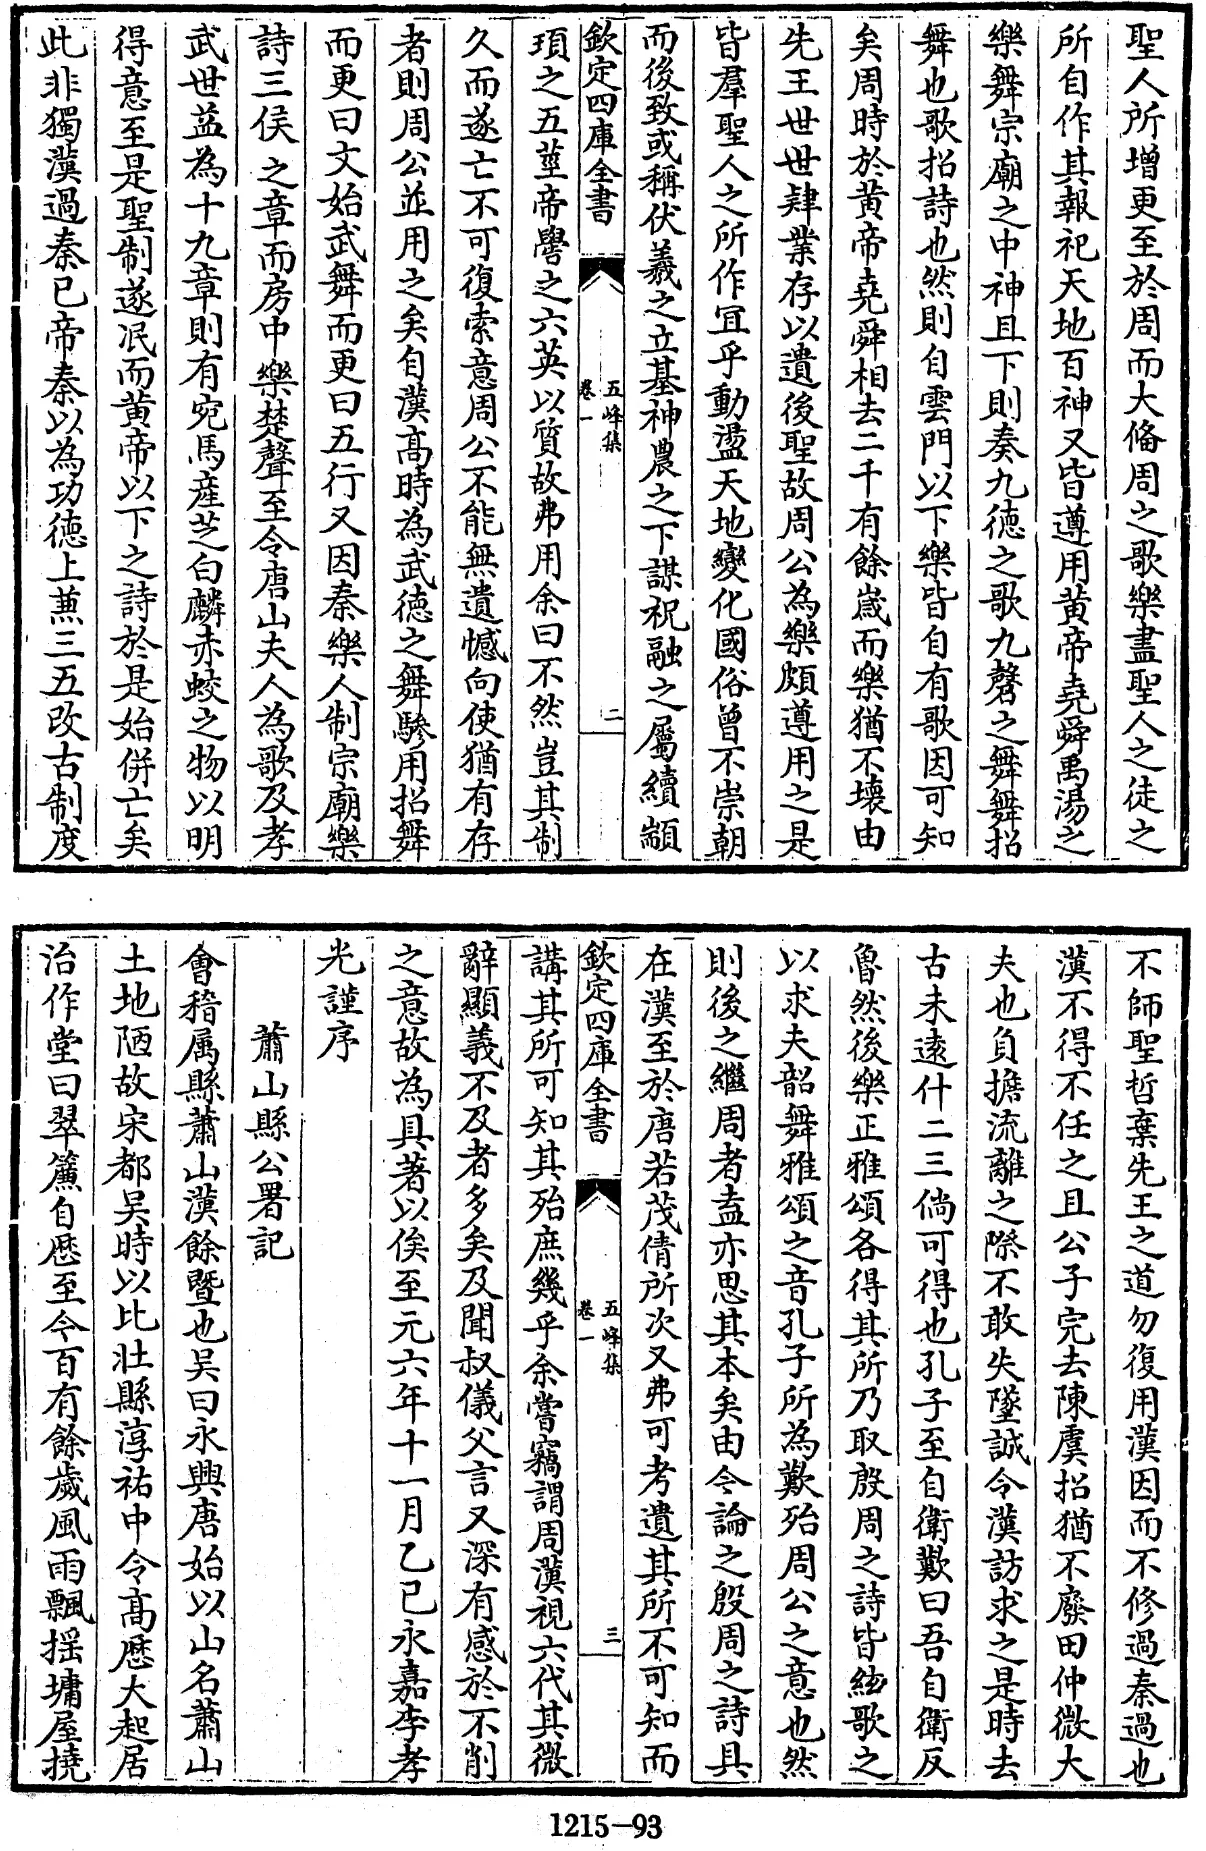 聖人所增更至於周而大備周之歌樂盡聖人之徒之
所自作其報祀天地百神又皆遵用黄帝堯舜禹湯之
樂舞宗廟之中神且下則奏九德之歌九磬之舞舞招
舞也歌招詩也然則自雲門以下樂皆自有歌因可知
矣周時於黄帝堯舜相去二千有餘嵗而樂猶不壊由
先王世世肄業存以遺後聖故周公為樂頗遵用之是
皆羣聖人之所作宜乎動盪天地變化國俗曾不崇朝
而後致或稱伏羲之立基神農之下謀祝融之屬續顓
欽定四庫全書
五峰集
卷一
二
頊之五莖帝嚳之六英以質故弗用余曰不然豈其制
久而遂亡不可復索意周公不能無遺憾向使猶有存
者則周公並用之矣自漢髙時為武德之舞驂用招舞
而更曰文始武舞而更曰五行又因秦樂人制宗廟樂
詩三侯之章而房中樂楚聲至令唐山夫人為歌及孝
武世益為十九章則有宛馬産芝白麟赤蛟之物以明
得意至是聖制遂泯而黄帝以下之詩於是始併亡矣
此非獨漢過秦已帝秦以為功德上兼三五改古制度
不師聖哲棄先王之道勿復用漢因而不修過秦過也
漢不得不任之且公子完去陳虞招猶不廢田仲微大
夫也負擔流離之際不敢失墜誠令漢訪求之是時去
古未遠什二三倘可得也孔子至自衛歎曰吾自衛反
魯然後樂正雅頌各得其所乃取殷周之詩皆絃歌之
以求夫韶舞雅頌之音孔子所為歎殆周公之意也然
則後之繼周者盍亦思其本矣由今論之殷周之詩具
在漢至於唐若茂倩所次又弗可考遺其所不可知而
欽定四庫全書
五峰集
卷一
三
講其所可知其殆庶幾乎余嘗竊謂周漢視六代其微
辭顯義不及者多矣及聞叔儀父言又深有感於不削
之意故為具著以俟至元六年十一月乙巳永嘉李孝
光謹序
蕭山縣公署記
會稽属縣蕭山漢餘暨也吴曰永興唐始以山名蕭山
土地陋故宋都吴時以比壮縣淳祐中令髙厯大起居
治作堂曰翠簾自厯至今百有餘歲風雨飄揺墉屋撓
1215-93